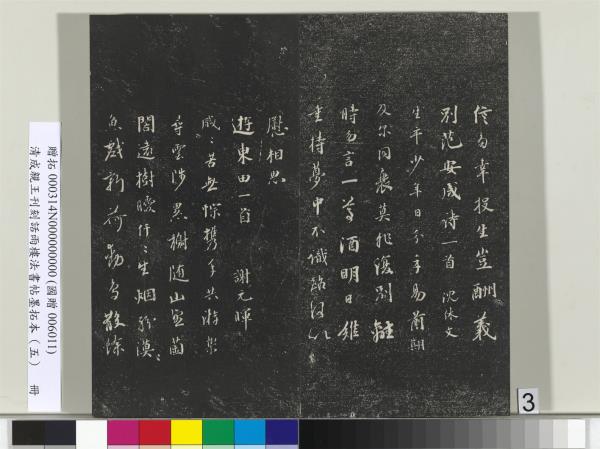 信多幸投生豈酬義
別范安成詩一首 沈休文
生平少年日分手易前期
及尔同衰莫非復別離
時勿言一尊酒明日難
重持夢中不識路何以
慰相思
遊東田一首 謝元暉
慼〻苦無悰携手共遊樂
尋雲陟累榭隨山望菌
閣遠樹曖仟〻生烟紛漠〻
魚戲新荷動鳥散餘
贈拓 000314N000000000 (國贈 006011)
清成親王刊刻話雨樓法書帖墨拓本（五） 冊
3